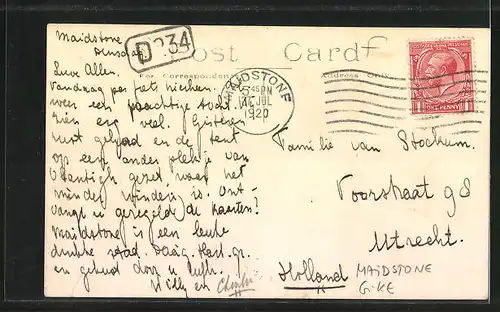 Maidstone
Dinsdag
D 234
Post Card
For Correspondence
Address Only
MAIDSTONE
5 45 PM
JUL
1920
ONE PENNY
Lieve Allen.
Vandaag per fiets hierheen.
weer een prachtige tocht
zien erg veel. Gisteren
rust gehad en de tent
op een ander plekje van
gezet, waar het
minder winderig is. Ont-
vangt u geregeld de kaarten?
Maidstone is een leuke
drukke stad. Hart. gr.
en gehad door u
Willy en
Familie van Stockum.
Voorstraat 98
Utrecht.
Holland
MAIDSTONE
G.KE